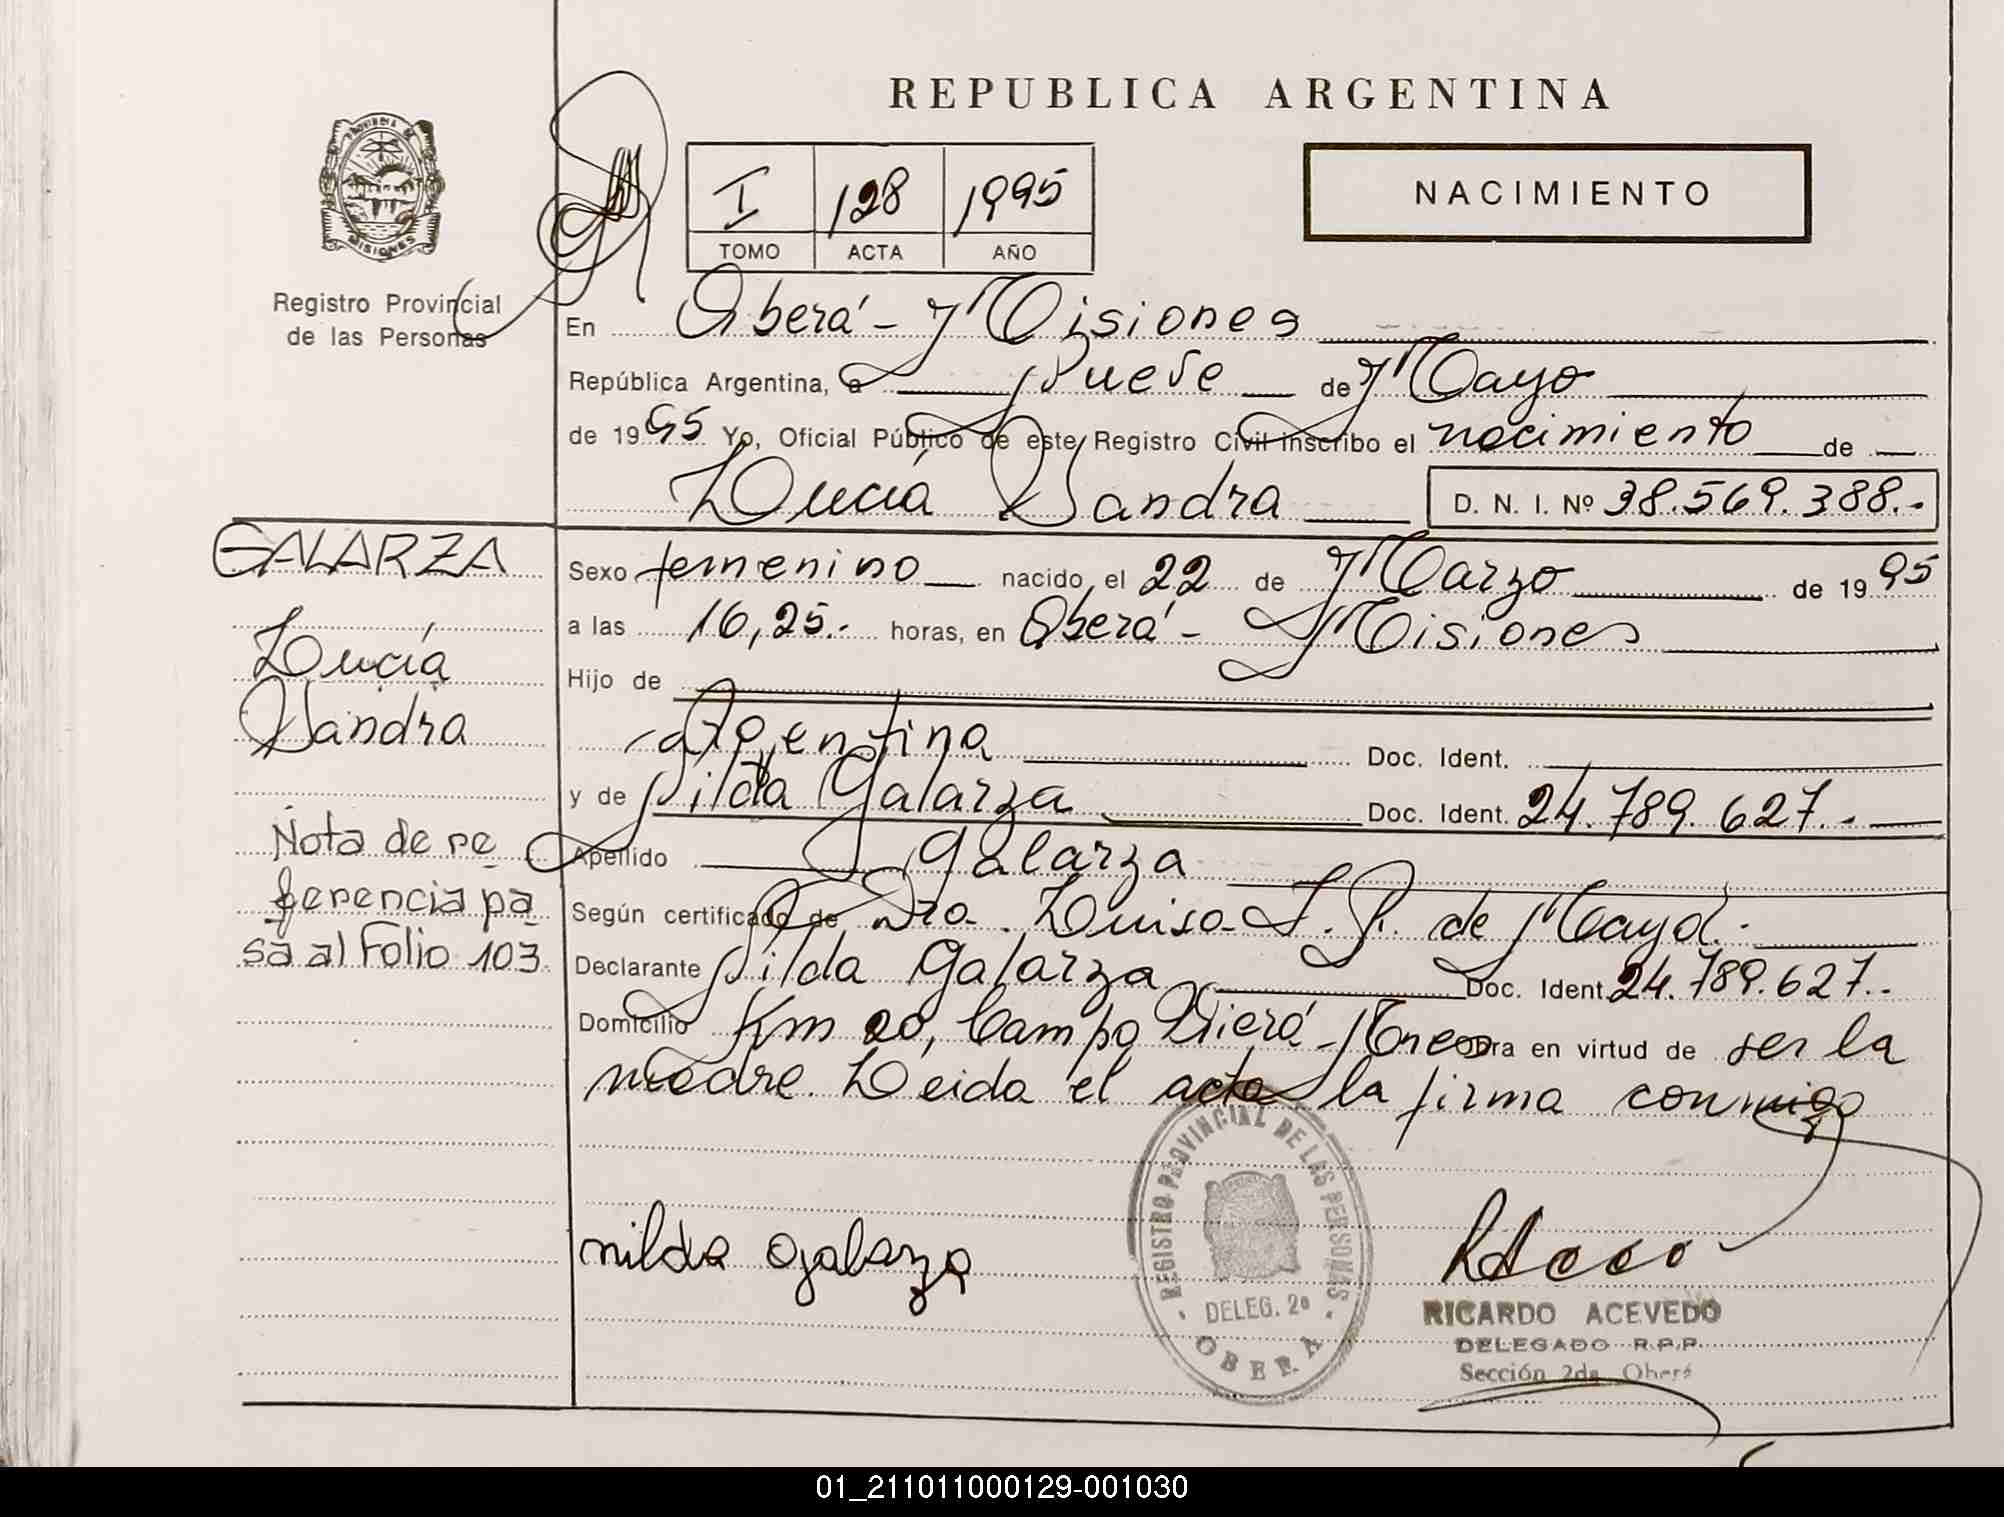 REPUBLICA ARGENTINA
PROVINCIA DE
MISIONES
Registro Provincial
de las Personas
I 128 1995
TOMO ACTA AÑO
NACIMIENTO
En Oberá - Misiones
República Argentina, a Nueve de Mayo
de 1995 Yo, Oficial Público de este Registro Civil inscribo el nacimiento de
Lucía Sandra D. N. I. Nº 38.569.388.-
GALARZA
Lucía
Sandra
Nota de re
ferencia pa
sa al Folio 103
Sexo femenino nacido el 22 de Marzo de 1995
a las 16,25.- horas, en Oberá - Misiones
Hijo de
Argentina Doc. Ident.
y de Nilda Galarza Doc. Ident. 24.789.627.-
Apellido Galarza
Según certificado de Dra. Luisa de Mayol.-
Declarante Nilda Galarza Doc. Ident. 24.789.627.-
Domicilio Km 20, Campo Viera - Mnes Obra en virtud de ser la
madre. Leida el acta la firma conmigo
nilda galarza
REGISTRO PROVINCIAL DE LAS PERSONAS
DELEG. 2ª
OBERA
RICARDO ACEVEDO
DELEGADO R.P.P.
Sección 2da. Oberá
01_211011000129-001030